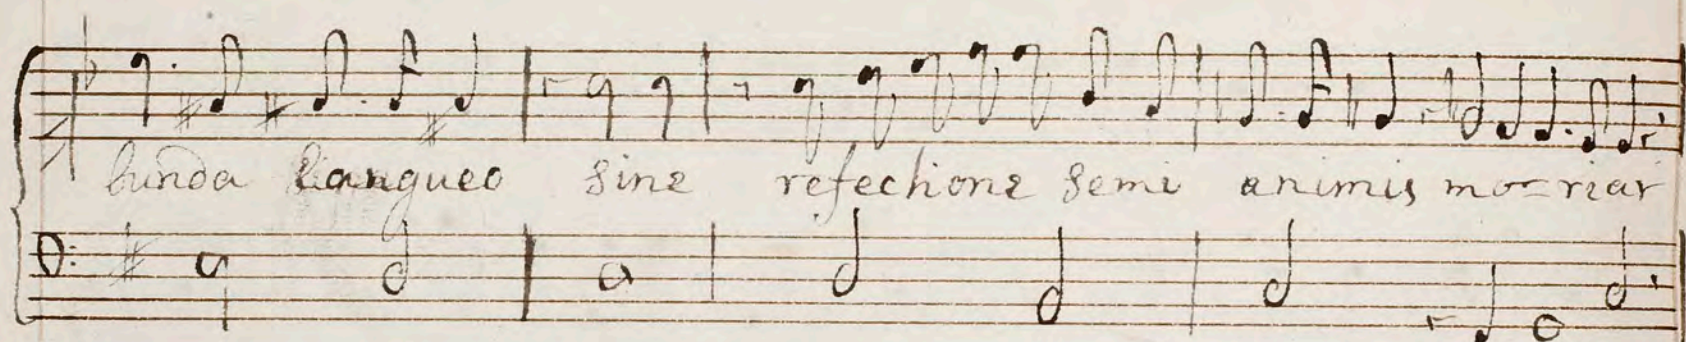 bunda langueo sine refectione semi animis mo-riar